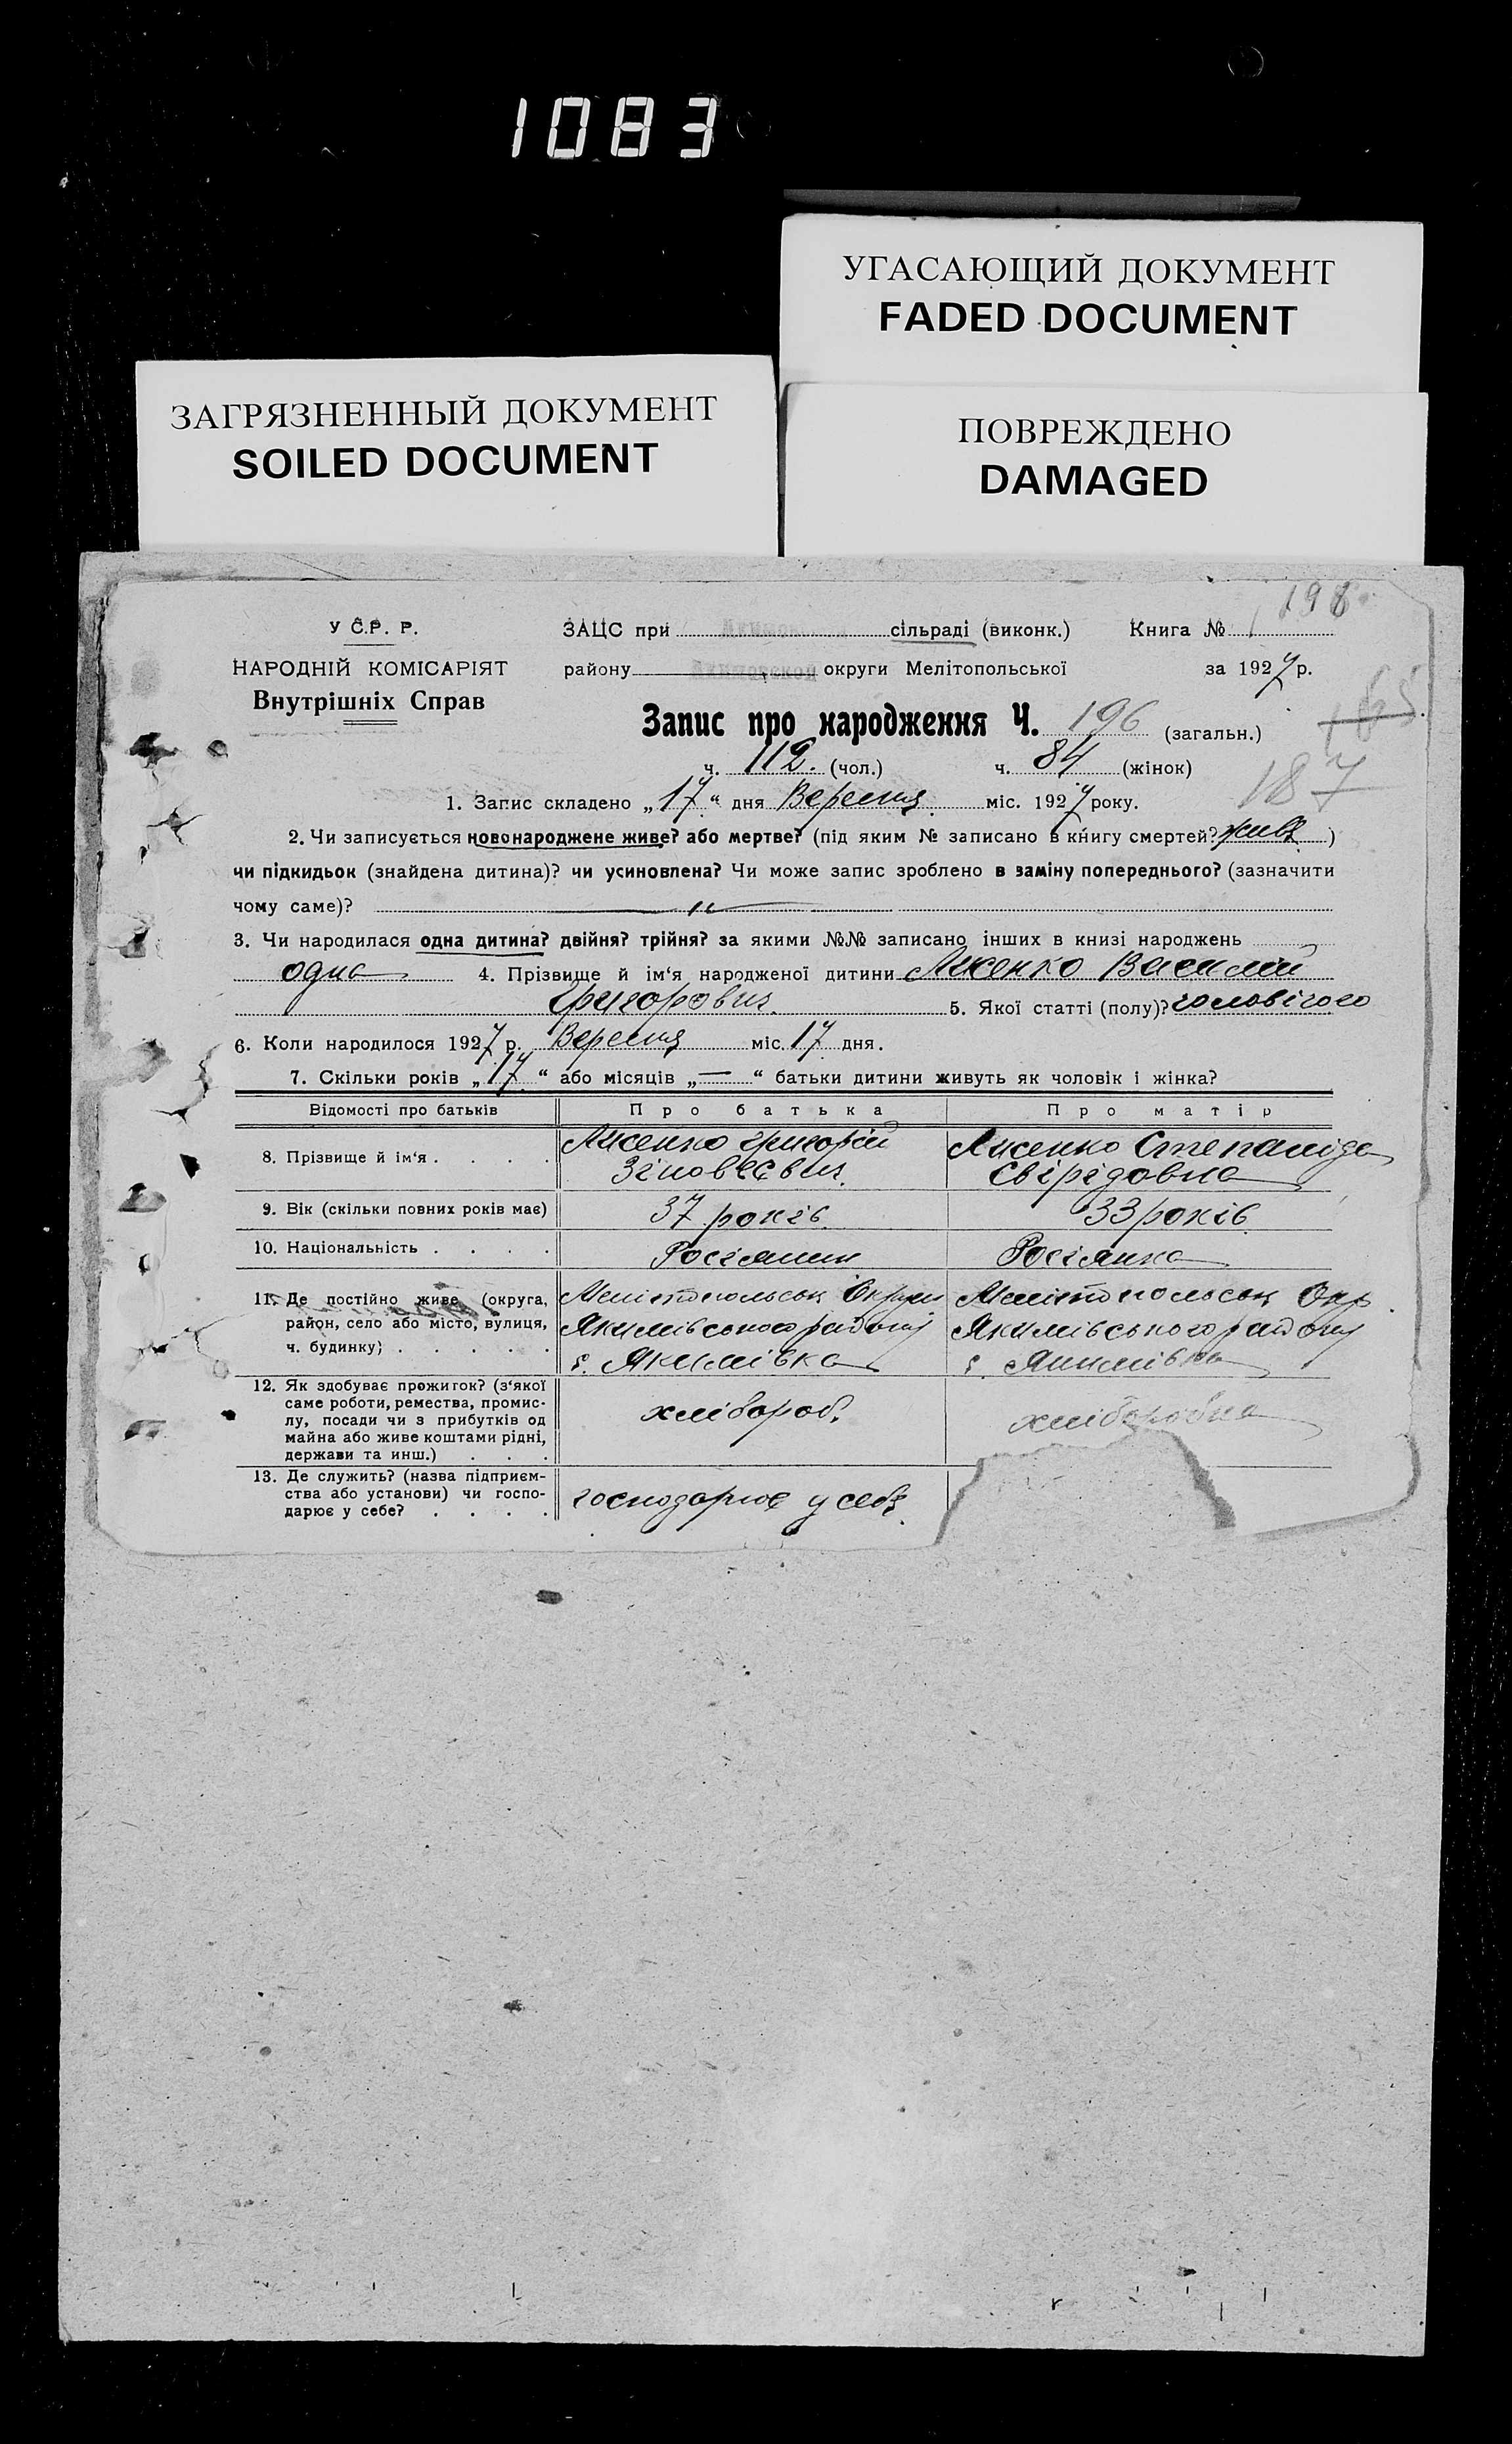 1083
УГАСАЮЩИЙ ДОКУМЕНТ
FADED DOCUMENT
ЗАГРЯЗНЕННЫЙ ДОКУМЕНТ
SOILED DOCUMENT
ПОВРЕЖДЕНО
DAMAGED
198
У С.Р. Р. ЗАЦС при сільраді (виконк.) Книга №
НАРОДНІЙ КОМІСАРІЯТ району округи Мелітопольської за 1927 р.
Внутрішніх Справ
165
Запис про народження Ч. 196 (загальн.)
ч. 112. (чол.) ч. 84 (жінок)
187
1. Запис складено „17“ дня Вересня міс. 1927 року.
2. Чи записується новонароджене живе? або мертве? (під яким № записано в книгу смертей? живе)
чи підкидьок (знайдена дитина)? чи усиновлена? Чи може запис зроблено в заміну попереднього? (зазначити
чому саме)? — „ —
3. Чи народилася одна дитина? двійня? трійня? за якими №№ записано інших в книзі народжень
одна 4. Прізвище й ім‘я народженої дитини Лисенко Василій
Григорович. 5. Якої статті (полу)? чоловічого
6. Коли народилося 1927 р. Вересня міс. 17 дня.
7. Скільки років „17“ або місяців „—“ батьки дитини живуть як чоловік і жінка?
Відомості про батьків Про батька Про матір
8. Прізвище й ім‘я . . . . Лисенко Григорій Лисенко Степаніда
Зіновеєвич. Свірідовна
9. Вік (скільки повних років має) 37 років. 33 років
10. Національність . . . . Росіянин Росіянка
11. Де постійно живе (округа, Мелітопольськ Округи Мелітопольськ Окр.
район, село або місто, вулиця, Якимівського району Якимівського району
ч. будинку) . . . . . с. Якимівка с. Якимівка
12. Як здобуває прожиток? (з‘якої
саме роботи, ремества, промис-
лу, посади чи з прибутків од хлібороб. хліборобка
майна або живе коштами рідні,
держави та инш.) . . .
13. Де служить? (назва підприєм-
ства або установи) чи госпо- господарює у себе.
дарює у себе? . . . .